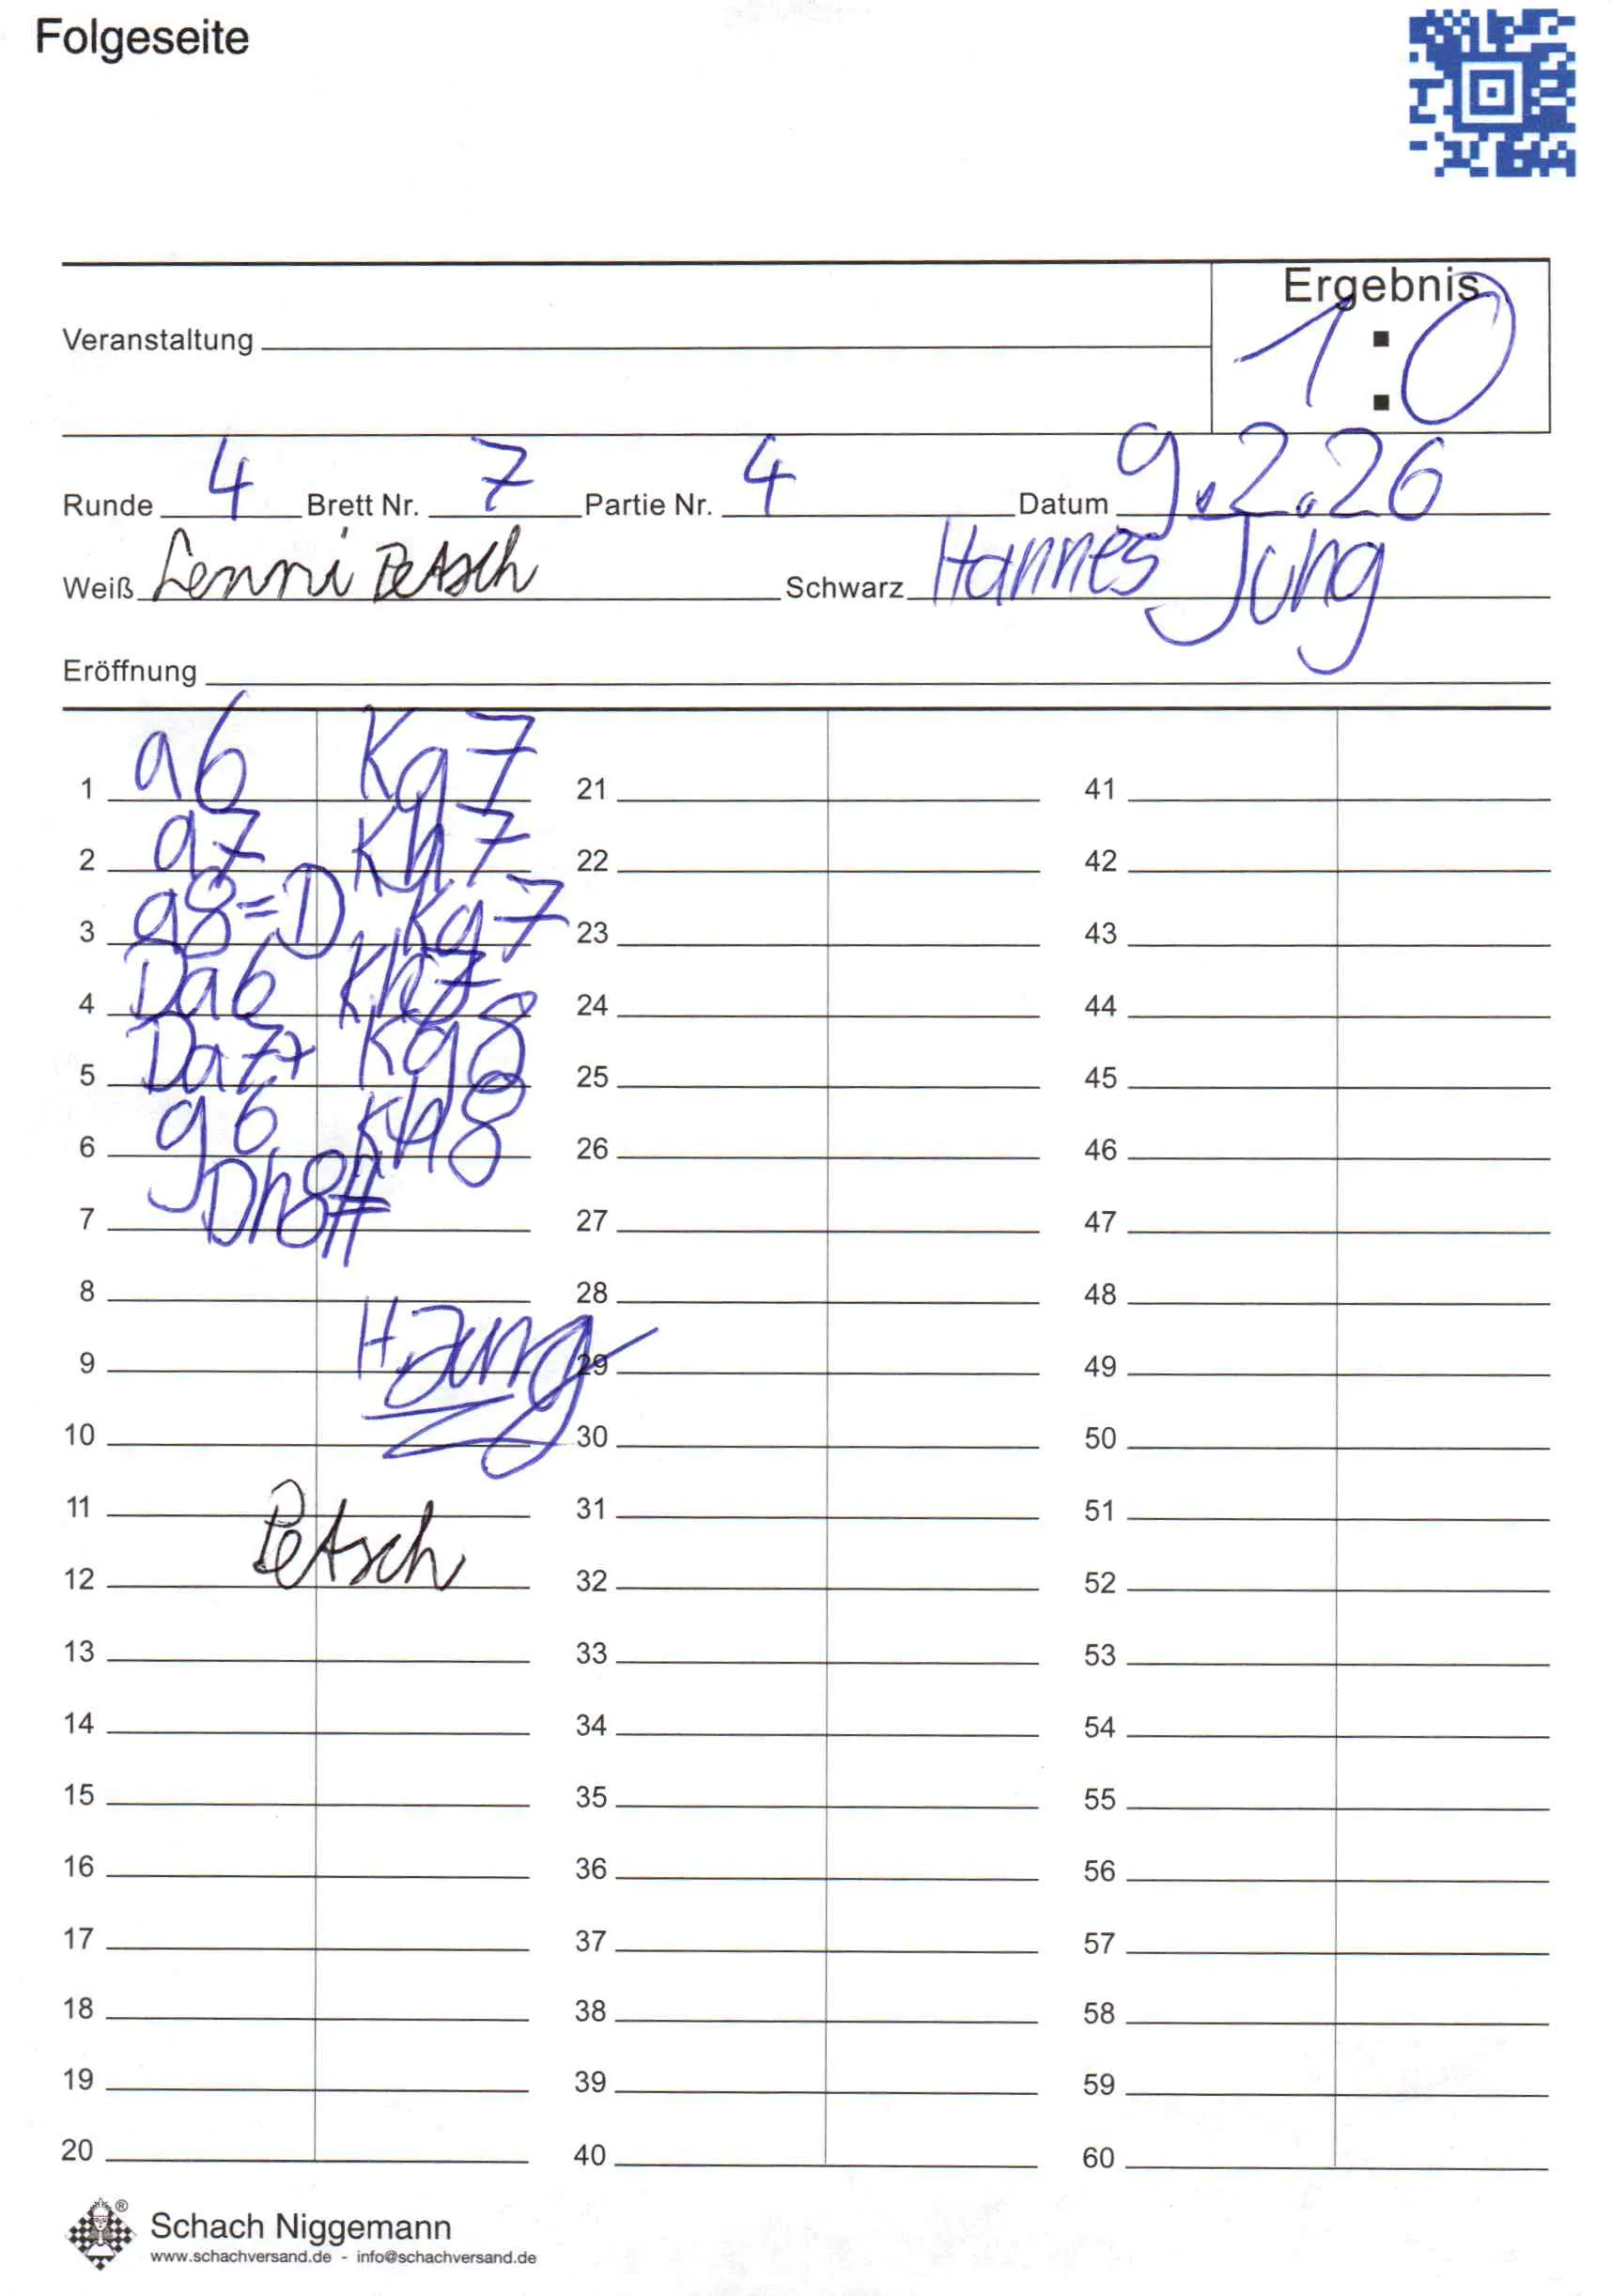 Folgeseite
Ergebnis
1:0
Veranstaltung
Runde 4 Brett Nr. 7 Partie Nr. 4 Datum 9.2.26
Weiß Lenni Petsch Schwarz Hannes Jung
Eröffnung
1 a6 Kg7 21 41
2 a7 Kh7 22 42
3 a8=D Kg7 23 43
4 Da6 Kh7 24 44
5 Da7+ Kg8 25 45
6 g6 Kh8 26 46
7 Dh8# 27 47
8 28 48
9 H.Jung 29 49
10 30 50
11 31 51
12 Petsch 32 52
13 33 53
14 34 54
15 35 55
16 36 56
17 37 57
18 38 58
19 39 59
20 40 60
Schach Niggemann ®
www.schachversand.de - info@schachversand.de